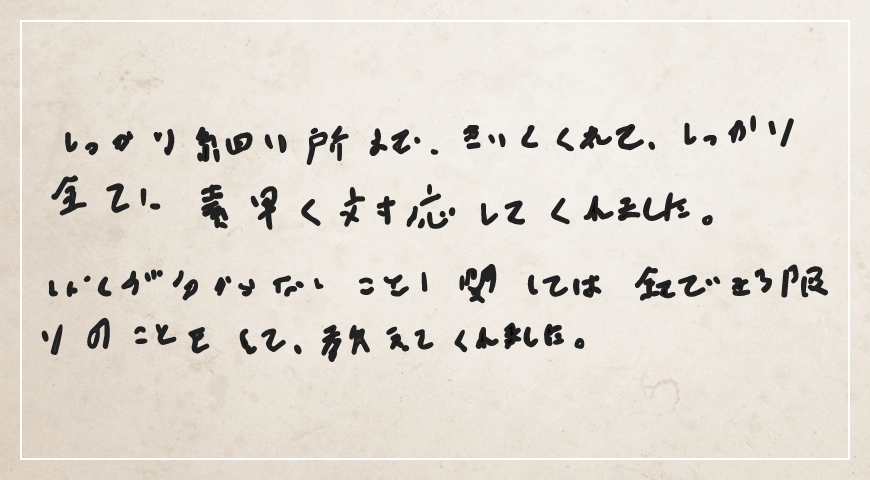 しっかり細い所まで、きいてくれて、しっかり
全てに素早く対応してくれました。
いくが分からないことに関しては全てできる限
りのことをして、教えてくれました。